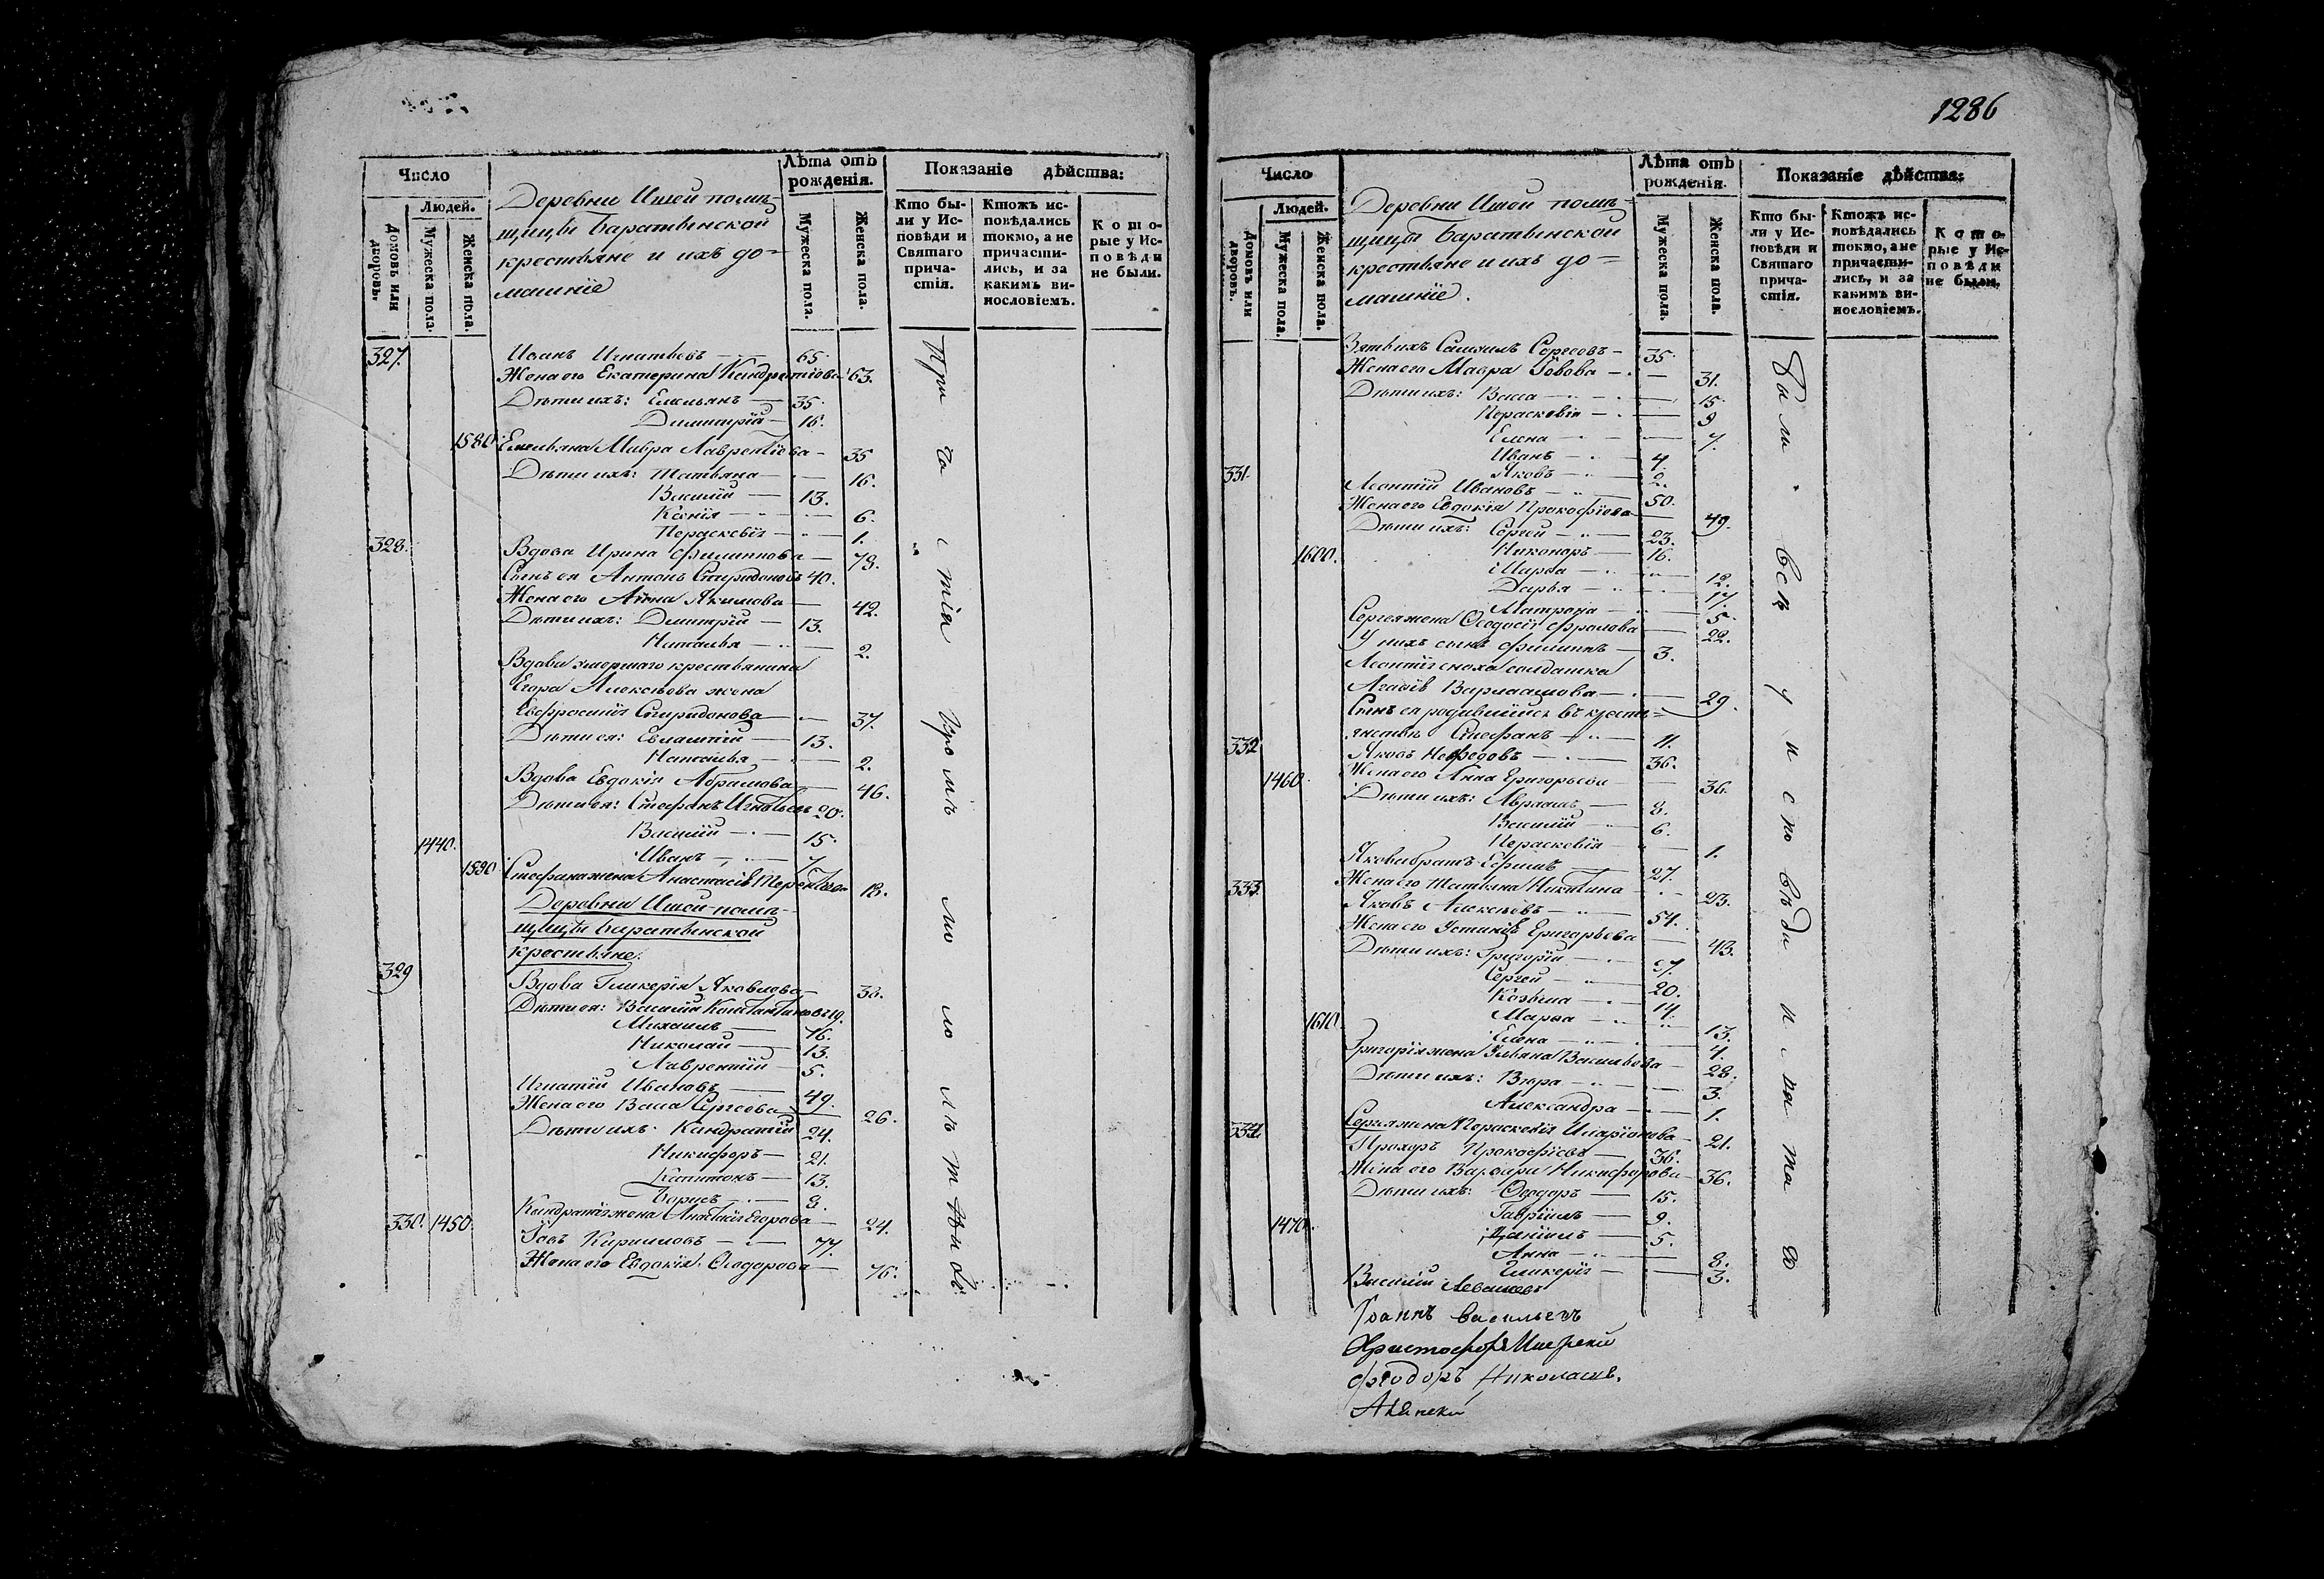 Число
Людей.
Домовъ или дворовъ.
Мужеска пола.
Женска пола.
Деревни Ишей помѣ-
щицы Баратынской
крестьяне и ихъ до=
машнїе
Лѣта отъ рожденія.
Мужеска пола.
Женска пола.
Показаніе дѣйства:
Кто бы-
ли у Ис-
повѣди и
Святаго
прича-
стія.
Ктожъ ис-
повѣдались
токмо, а не
причасти-
лись, и за
какимъ ви-
нословіемъ.
К о т о-
рые у Ис-
п о в ѣ д и
не были.
327. Иванъ Игнатьевъ 65.
Жена его Екатерина Кондратїева 63.
Дѣти ихъ: Емельянъ 35.
Димитрїй 16.
1580. Емельяна Мавра Лаврентїева 35
Дѣти ихъ: Татьяна 16.
Василїй 13.
Ксенїя 6.
Пераскевїя 1.
328. Вдова Ирина Филиппова 78.
Сынъ ея Антонъ Спиридоновъ 40.
Жена его Анна Якимова 42.
Дѣти ихъ: Димитрїй 13.
Наталья 2.
Вдова умершаго крестьянина
Егора Алексѣева жена
Евфросинїя Спиридонова 37.
Дѣти ея: Евлампїй 13.
Наталья 2.
Вдова Евдокїя Абрамова 46.
Дѣти ея: Стефанъ Игнатьевъ 20.
Василїй 15.
1440. Иванъ 7.
1590 Стефана жена Анастасїя Терентїева 18.
Деревни Ишей помѣ-
щицы Баратынской
крестьяне.
329 Вдова Гликерїя Яковлева 38.
Дѣти ея: Василїй Константиновъ 19.
Михаилъ 16.
Николай 13.
Лаврентїй 5.
Игнатїй Ивановъ 49.
Жена его Васса Сергеева 26.
Дѣти ихъ: Кондратїй 24.
Никифоръ 21.
Капитонъ 13.
Борисъ 8.
Кондратїя жена Анастасїя Егорова 24.
330. 1450. Іовъ Кириловъ 77.
Жена его Евдокїя Ѳеодорова 76.
При ча стія
1286
Число
Людей.
Домовъ или дворовъ.
Мужеска пола.
Женска пола.
Деревни Ишей помѣ-
щицы Баратынской
крестьяне и ихъ до=
машнїе.
Лѣта отъ рожденія.
Мужеска пола.
Женска пола.
Показаніе дѣйства:
Кто бы-
ли у Ис-
повѣди и
Святаго
прича-
стія.
Ктожъ ис-
повѣдались
токмо, а не
причасти-
лись, и за
какимъ ви-
нословіемъ.
К о т о-
рые у Ис-
п о в ѣ д и
не были.
Зять ихъ Самуилъ Сергеевъ 35.
Жена его Мавра Іовова 31.
Дѣти ихъ: Васса 15.
Пераскевїя 9
Елена 7.
Иванъ 4.
Яковъ 2.
331. Леонтїй Ивановъ 50.
Жена его Евдокїя Прокофїева 49.
Дѣти ихъ: Сергей 23.
1600. Никоноръ 16.
Марѳа 12.
Дарья 17.
Матрона 5.
Сергея жена Ѳеодосїя Фролова 22.
У нихъ сынъ Филиппъ 3.
Леонтїя сноха солдатка
Агафїя Варлаамова 29.
Сынъ ея родившїйся въ кресть=
янствѣ Стефанъ 11.
332 Яковъ Нефедовъ 36.
1460. Жена его Анна Григорьева 36.
Дѣти ихъ: Авраамъ 8.
Василїй 6.
Пераскевїя 1.
Якова братъ Ефимъ 27.
Жена его Татьяна Никитина 23.
333. Яковъ Алексѣевъ 54.
Жена его Устинїя Григорьева 43.
Дѣти ихъ: Григорїй 27.
Сергей 20.
Козьма 14.
1610. Марѳа 13.
Елена 4.
Григорїя жена Ульяна Васильева 28.
Дѣти ихъ: Вѣра 3.
Александра 1.
Сергея жена Пераскевїя Иларїонова 21.
334 Прохоръ Прокофїевъ 36.
Жена его Варвара Никифорова 36.
Дѣти ихъ: Ѳеодоръ 15.
Гаврїилъ 9.
1470. Данїилъ 5.
Анна 8.
Гликерїя 3.
были всѣ у исповѣди
Василїй
Іоаннъ Васильевъ
Христофоръ
Фѣодоръ Николаевъ.